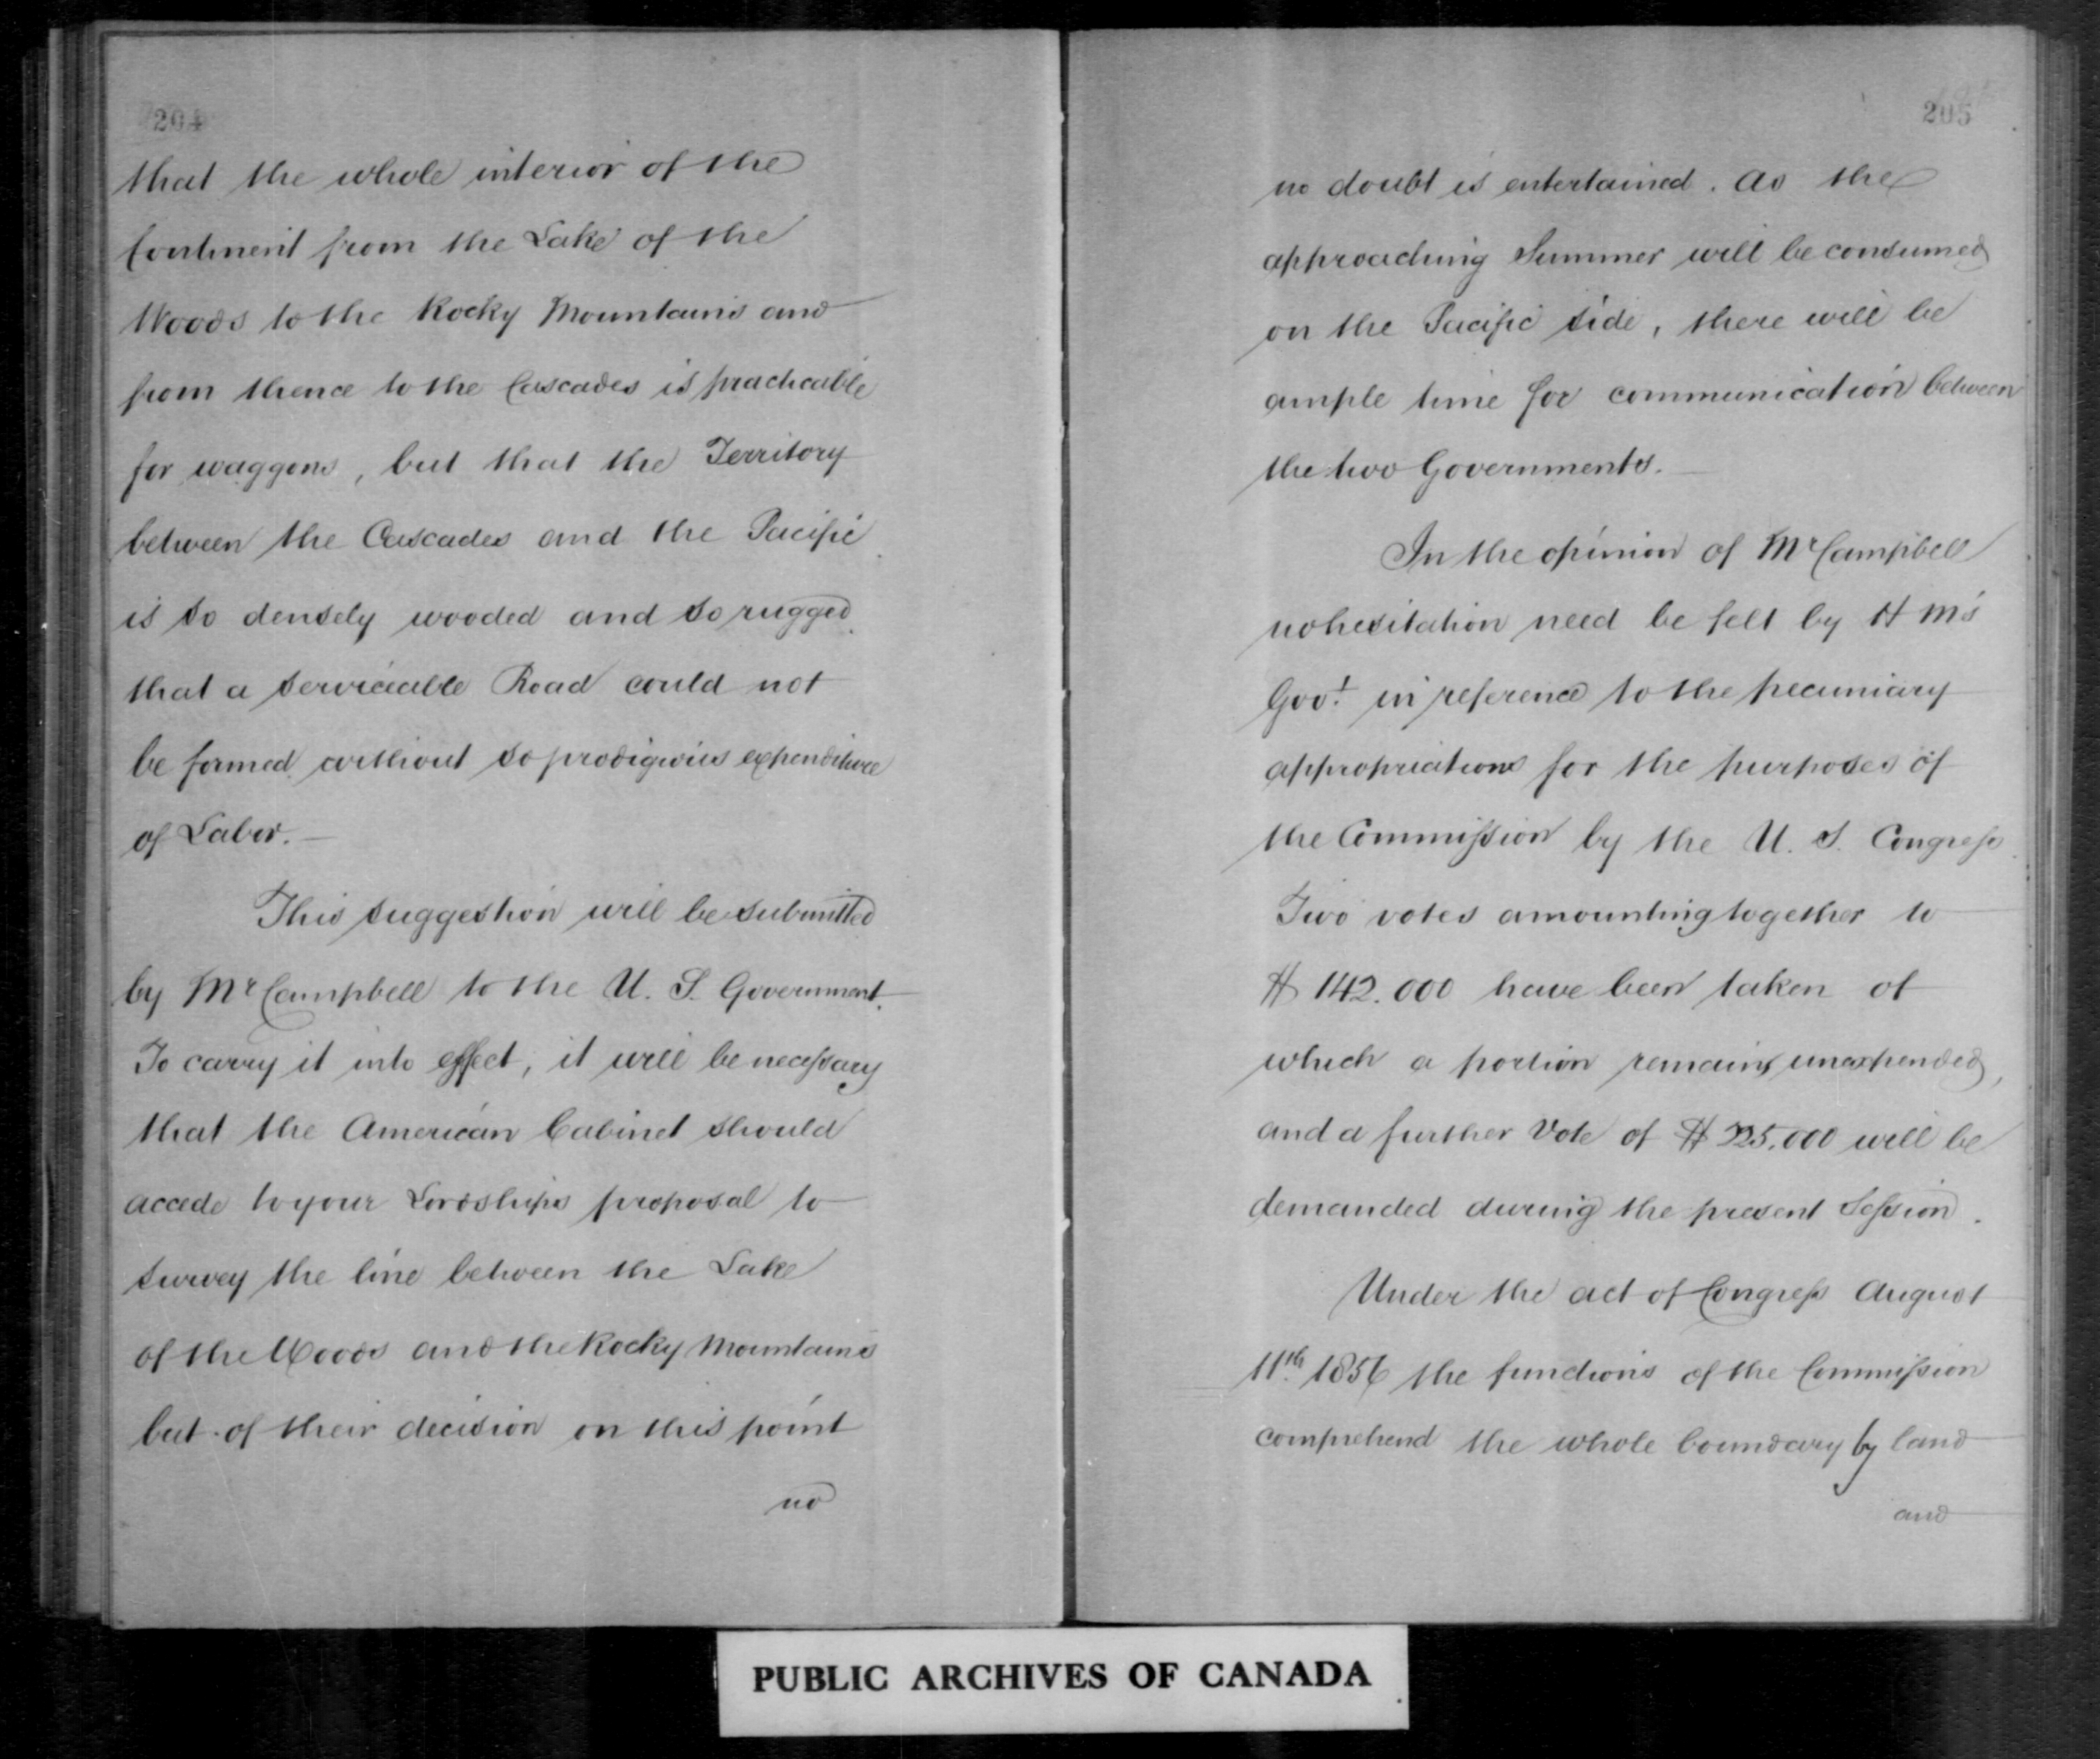 204
that the whole interior of the
Continent from the Lake of the
Woods to the Rocky Mountains and
from thence to the Cascades is practicable
for waggons, but that the Territory
between the Cascades and the Pacific
is so densely wooded and so rugged
that a serviceable Road could not
be formed without so prodigious expenditure
of Labor.—
This suggestion will be submitted
by Mr Campbell to the U. S. Government.
To carry it into effect, it will be necessary
that the American Cabinet should
accede to your Lordships proposal to
survey the line between the Lake
of the Woods and the Rocky Mountains
but of their decision on this point
no
205
no doubt is entertained. As the
approaching Summer will be consumed
on the Pacific side, there will be
ample time for communication between
the two Governments.—
In the opinion of Mr Campbell
no hesitation need be felt by H M's
Govt. in reference to the pecuniary
appropriations for the purposes of
the Commission by the U. S. Congress
Two votes amounting together to
$ 142.000 have been taken of
which a portion remains unexpended,
and a further Vote of $ 325.000 will be
demanded during the present Session.
Under the act of Congress August
11th. 1856 the functions of the Commission
comprehend the whole boundary by land
and
PUBLIC ARCHIVES OF CANADA